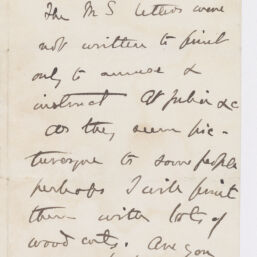 The M S letters were
not written to print
only to amuse &
instruct At Julia &c
As they seem pic-
turesque to some people
perhaps I will print
them with lots of
wood cuts. Are you